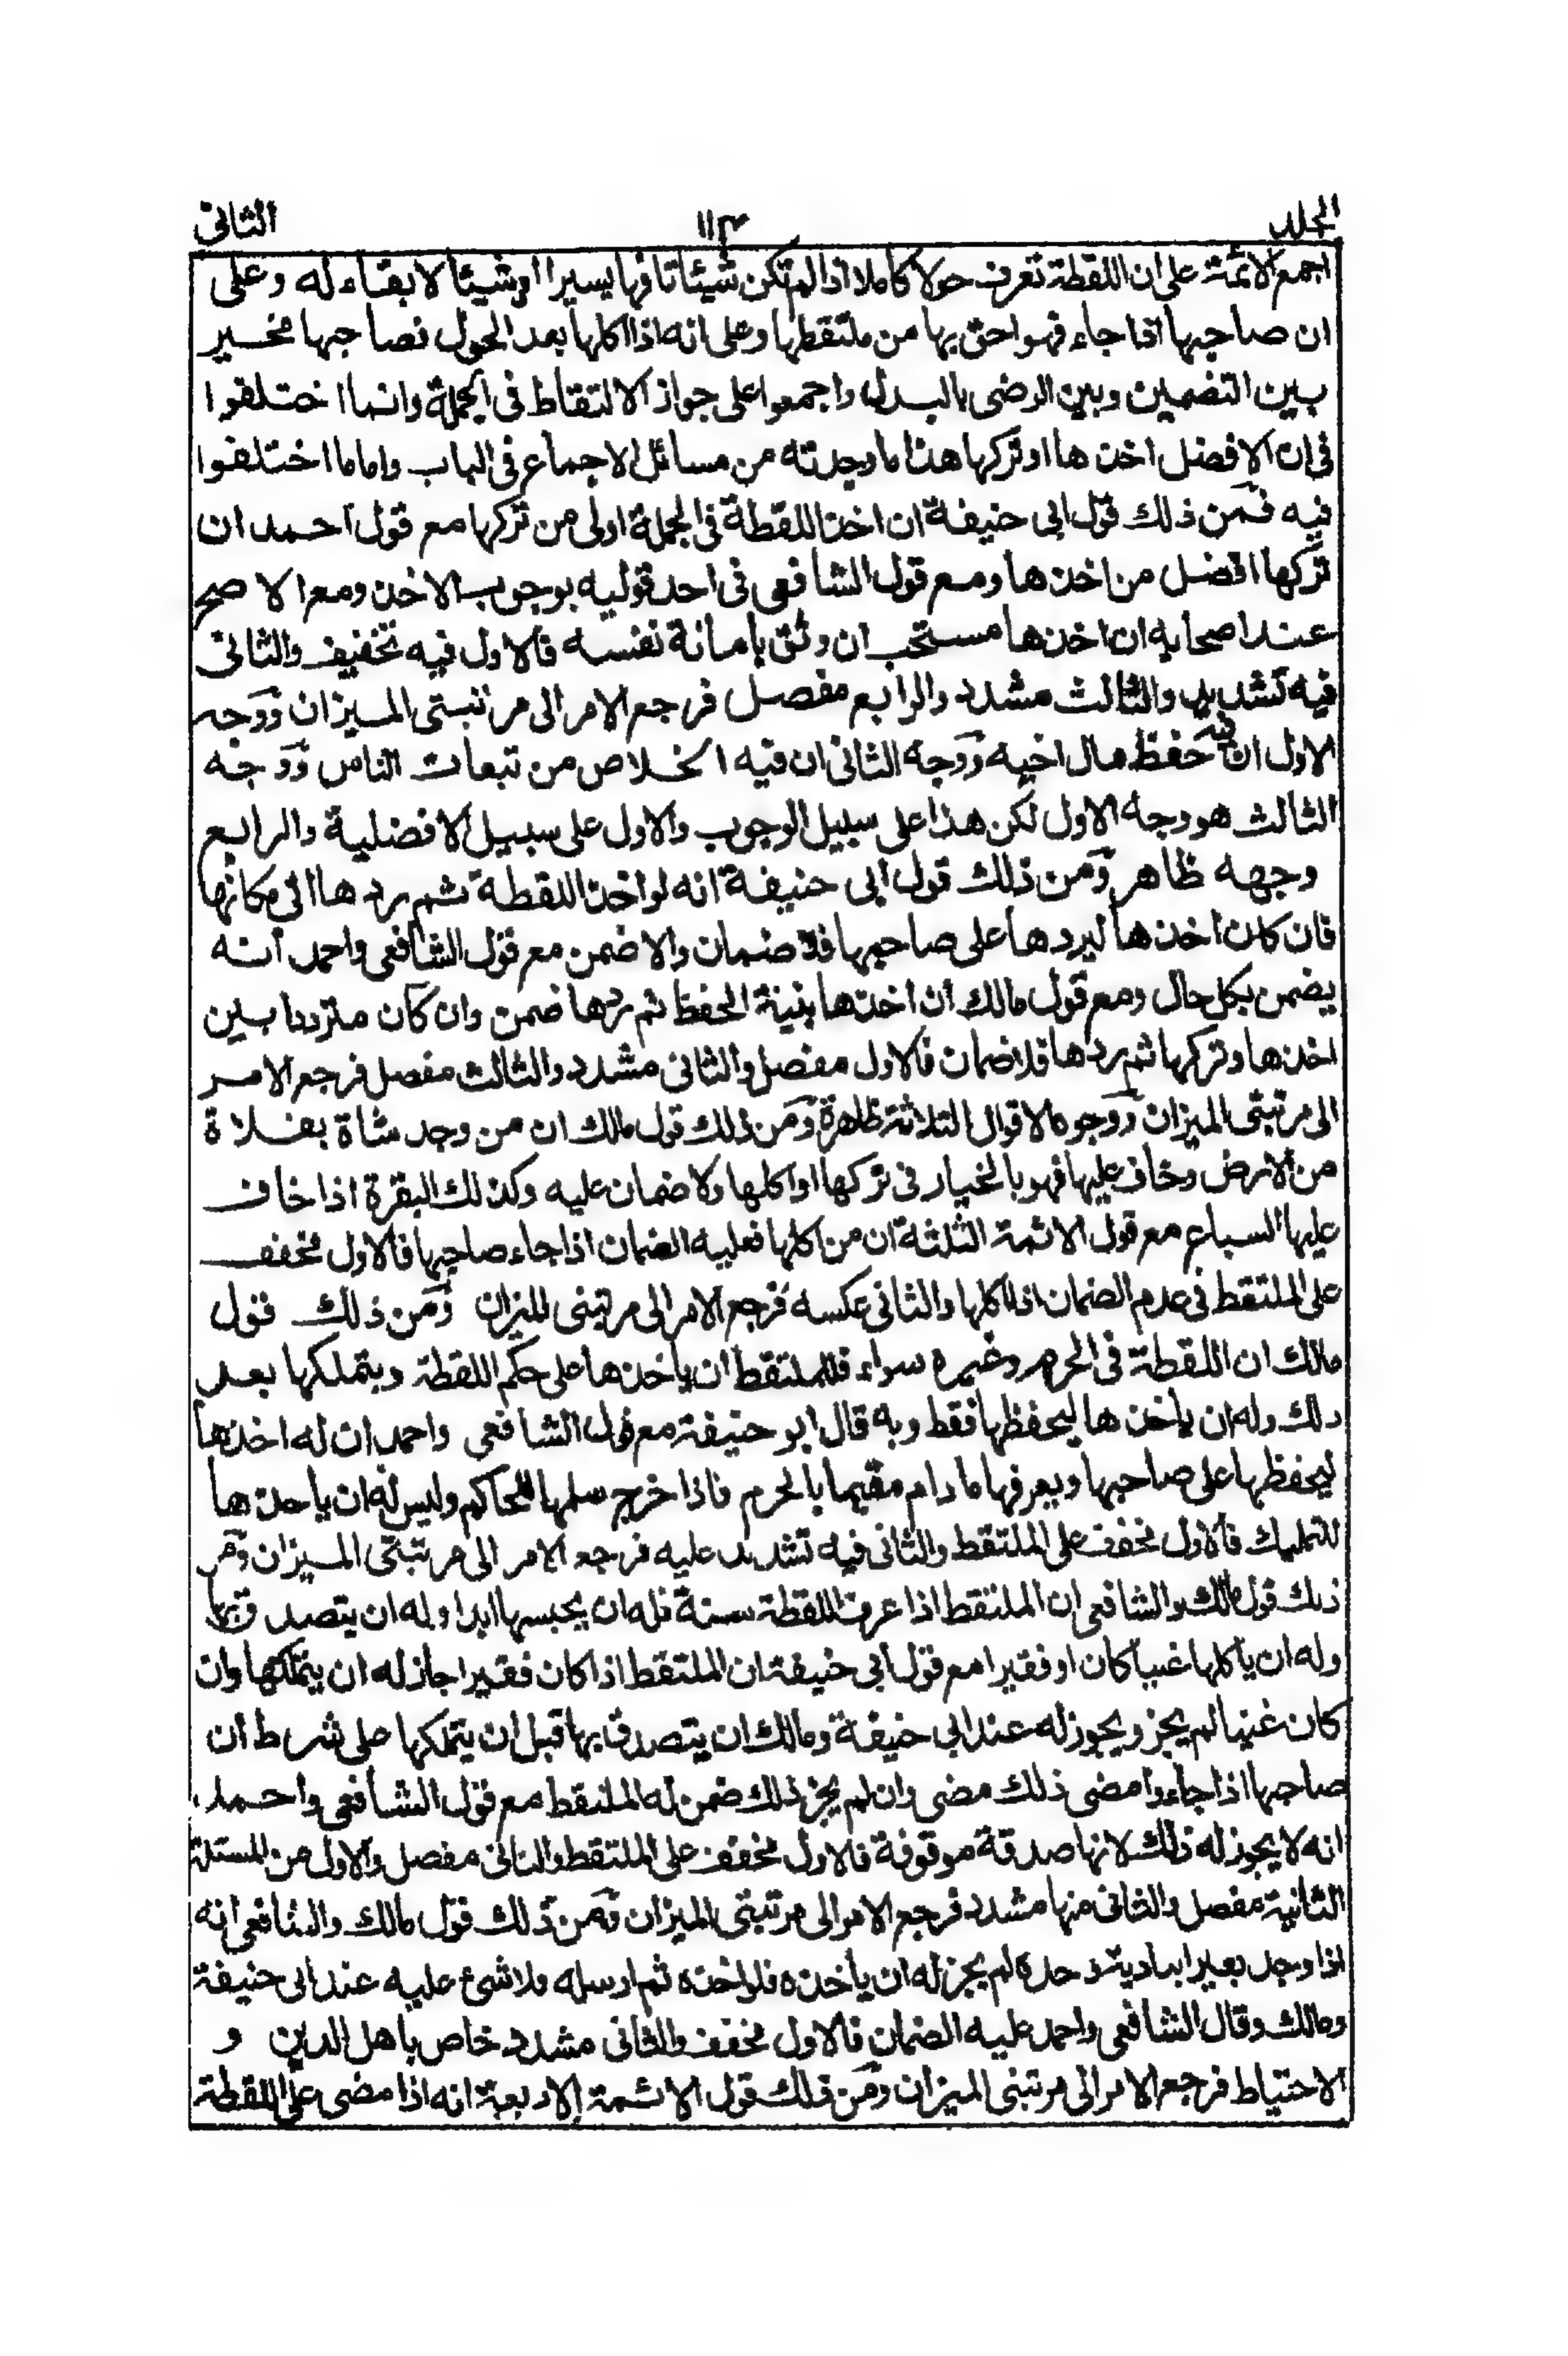 الجلد ١١٣ الثانى
اجمع الائمة على ان اللقطة تعرف حولا كاملا اذا لم تكن شيئا تافها يسيرا او شيئا لا بقاء له وعلى
ان صاحبها اذا جاء فهو احق بها من ملتقطها وعلى انه اذا اكلها بعد الحول فصاحبها مخير
بين التضمين وبين الرضى بالبدل واجمعوا على جواز الالتقاط فى الجملة وانما اختلفوا
فى ان الافضل اخذها او تركها هذا ما وجدته من مسائل الاجماع فى الباب واما ما اختلفوا
فيه فمن ذلك قول ابى حنيفة ان اخذ اللقطة فى الجملة اولى من تركها مع قول احمد ان
تركها افضل من اخذها ومع قول الشافعى فى احد قوليه بوجوب الاخذ ومع الاصح
عند اصحابه ان اخذها مستحب ان وثق بامانة نفسه فالاول فيه تخفيف والثانى
فيه تشديد والثالث مشدد والرابع مفصل فرجع الامر الى مرتبتى الميزان ووجه
الاول ان فيه حفظ مال اخيه ووجه الثانى ان فيه الخلاص من تبعات الناس ووجه
الثالث هو وجه الاول لكن هذا على سبيل الوجوب والاول على سبيل الافضلية والرابع
وجهه ظاهر ومن ذلك قول ابى حنيفة انه لو اخذ اللقطة ثم ردها الى مكانها
فان كان اخذها ليردها على صاحبها فلا ضمان والا ضمن مع قول الشافعى واحمد انه
يضمن بكل حال ومع قول مالك ان اخذها بنية الحفظ ثم ردها ضمن وان كان مترددا بين
اخذها وتركها ثم ردها فلا ضمان فالاول مفصل والثانى مشدد والثالث مفصل فرجع الامر
الى مرتبتى الميزان ووجوه الاقوال الثلاثة ظاهرة ومن ذلك قول مالك ان من وجد شاة بفلاة
من الارض وخاف عليها فهو بالخيار فى تركها او اكلها ولا ضمان عليه وكذلك البقرة اذا خاف
عليها السباع مع قول الائمة الثلثة ان من اكلها فعليه الضمان اذا جاء صاحبها فالاول مخفف
على الملتقط فى عدم الضمان اذا اكلها والثانى عكسه فرجع الامر الى مرتبتى الميزان ومن ذلك قول
مالك ان اللقطة فى الحرم وغيره سواء فللملتقط ان ياخذها على حكم اللقطة ويتملكها بعد
ذلك وله ان ياخذها ليحفظها فقط وبه قال ابو حنيفة مع قول الشافعى واحمد ان له اخذها
ليحفظها على صاحبها ويعرفها ما دام مقيما بالحرم فاذا خرج سلمها للحاكم وليس له ان ياخذها
للتمليك فالاول مخفف على الملتقط والثانى فيه تشديد عليه فرجع الامر الى مرتبتى الميزان ومن
ذلك قول مالك والشافعى ان الملتقط اذا عرف اللقطة سنة فله ان يحبسها ابدا وله ان يتصدق بها
وله ان ياكلها غنيا كان او فقيرا مع قول ابى حنيفة ان الملتقط اذا كان فقيرا جاز له ان يتملكها وان
كان غنيا لم يجز ويجوز له عند ابى حنيفة ومالك ان يتصدق بها قبل ان يتملكها على شرط ان
صاحبها اذا جاء وامضى ذلك مضى وان لم يجز ذلك ضمن له الملتقط مع قول الشافعى واحمد
انه لا يجوز له ذلك لانها صدقة موقوفة فالاول مخفف على الملتقط والثانى مفصل والاول من المسئلة
الثانية مفصل والثانى منها مشدد فرجع الامر الى مرتبتى الميزان ومن ذلك قول مالك والشافعى انه
اذا وجد بعيرا ببادية وحده لم يجز له ان ياخذه فلو اخذه ثم ارسله فلا شئ عليه عند ابى حنيفة
ومالك وقال الشافعى واحمد عليه الضمان فالاول مخفف والثانى مشدد خاص باهل الدين و
الاحتياط فرجع الامر الى مرتبتى الميزان ومن ذلك قول الائمة الاربعة انه اذا مضى على اللقطة